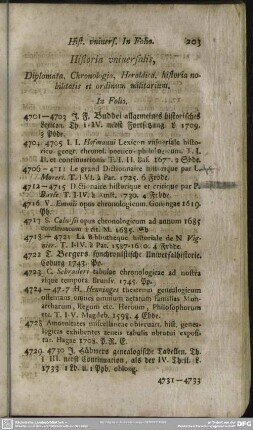 Hist. univers. In Folio. 203
Historia vniuersalis,
Diplomata, Chronologia, Heraldica, historia no-
bilitatis et ordinum militarium.
In Folio.
4701—4703 J. F. Buddei allgemeines historisches
Lexicon. Th. I-IV. nebst Fortsetzung. 1709.
3 Bde.
4704. 4705 I. I. Hofmanni Lexicon vniuersale histo-
rico- geogr. chronol. poetico- philolog. cum. T. I.
II. et continuationis T. I. II. Bas. 1677. 2 Ebde.
4706—4711 Le grand Dictionnaire historique par L.
Moreri. T. I-VI. à Par. 1732. 6 Frbde.
4712—4715 Dictionaire historique et critique par P.
Bayle T. I-IV. à Amst. 1730. 4 Frbde.
4716 V. opus chronologicum. Groningae 1619.
4717 S. Caluisii opus chronologicum ad annum 1685
continuatum. M. 1685.
4718—4721 La Bibliotheque historiale de N. Vig-
nier. T. I-IV. à Par. 1587-1600. 4 Frbde.
4722 T. Bergers synchronistische Universalhistorie.
Coburg 1743. Pp.
4723 C. Schraderi tabulae chronologicae ad nostra
vsque tempora. Brunsv. 1745. Pp.
4724—4727 H. Henninges theatrum genealogicum
ostentans omnes omnium aetatum familias Mon-
archarum, Regum etc. Heroum, Philosophorum
etc. T. I-V. Magdeb. 1598. 4 Ebde.
4728 Amoenitates miscellaneae obseruat. hist. genea-
logicis exhibentes aeneis tabulis
tae. Hagae 1708.
4729. 4730 J. Hübners genealogische Tabellen. Th.
I-III. nebst Continuation, als der IV. Theil.
1733
4731—4733